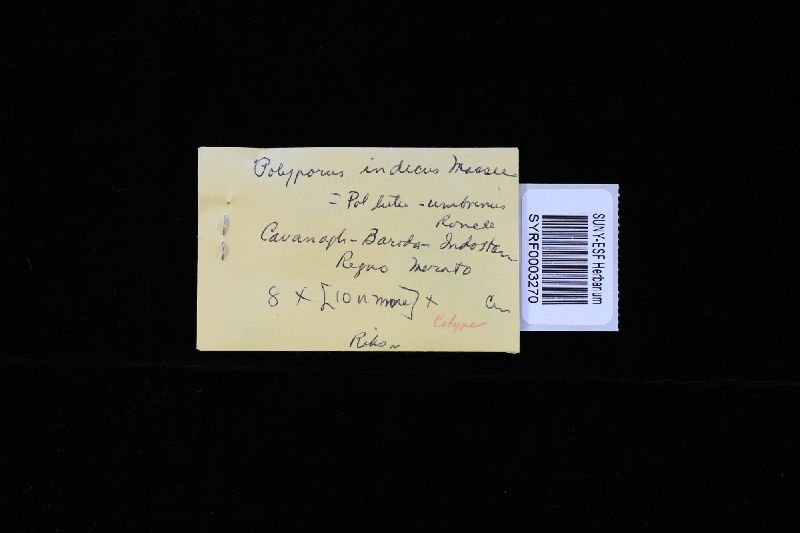 Polyporus indicus Massee
= Pol luteo-umbrinus
Romell
Cavanagh - Baroda - Indostan
Regno Merato
8 × [10 n more] × Cm
Cotype
SUNY-ESF Herbarium
SYRF0003270